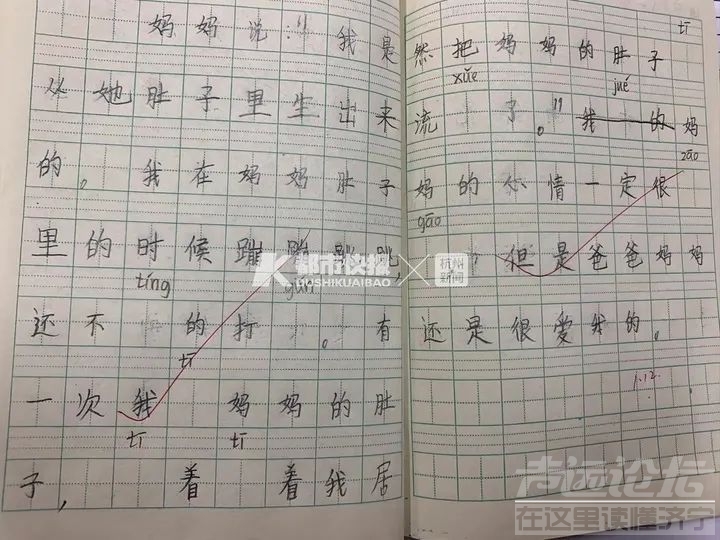 妈妈说:"我是
从她肚子里生出来
的。我在妈妈肚子
里的时候蹦蹦跳跳,
tíng gǔn
还不 的打 。有
tī
一次我 妈妈的肚
tī tī
子, 着 着我居
tī
然把妈妈的肚子
xuě jué
流 了。"我的妈
zāo
妈的心情一定很
gāo
但是爸爸妈妈
还是很爱我的。
1.12.
都市快报
DUSHIKUAIBAO
杭州
新闻
志远论坛
在这里读懂济宁